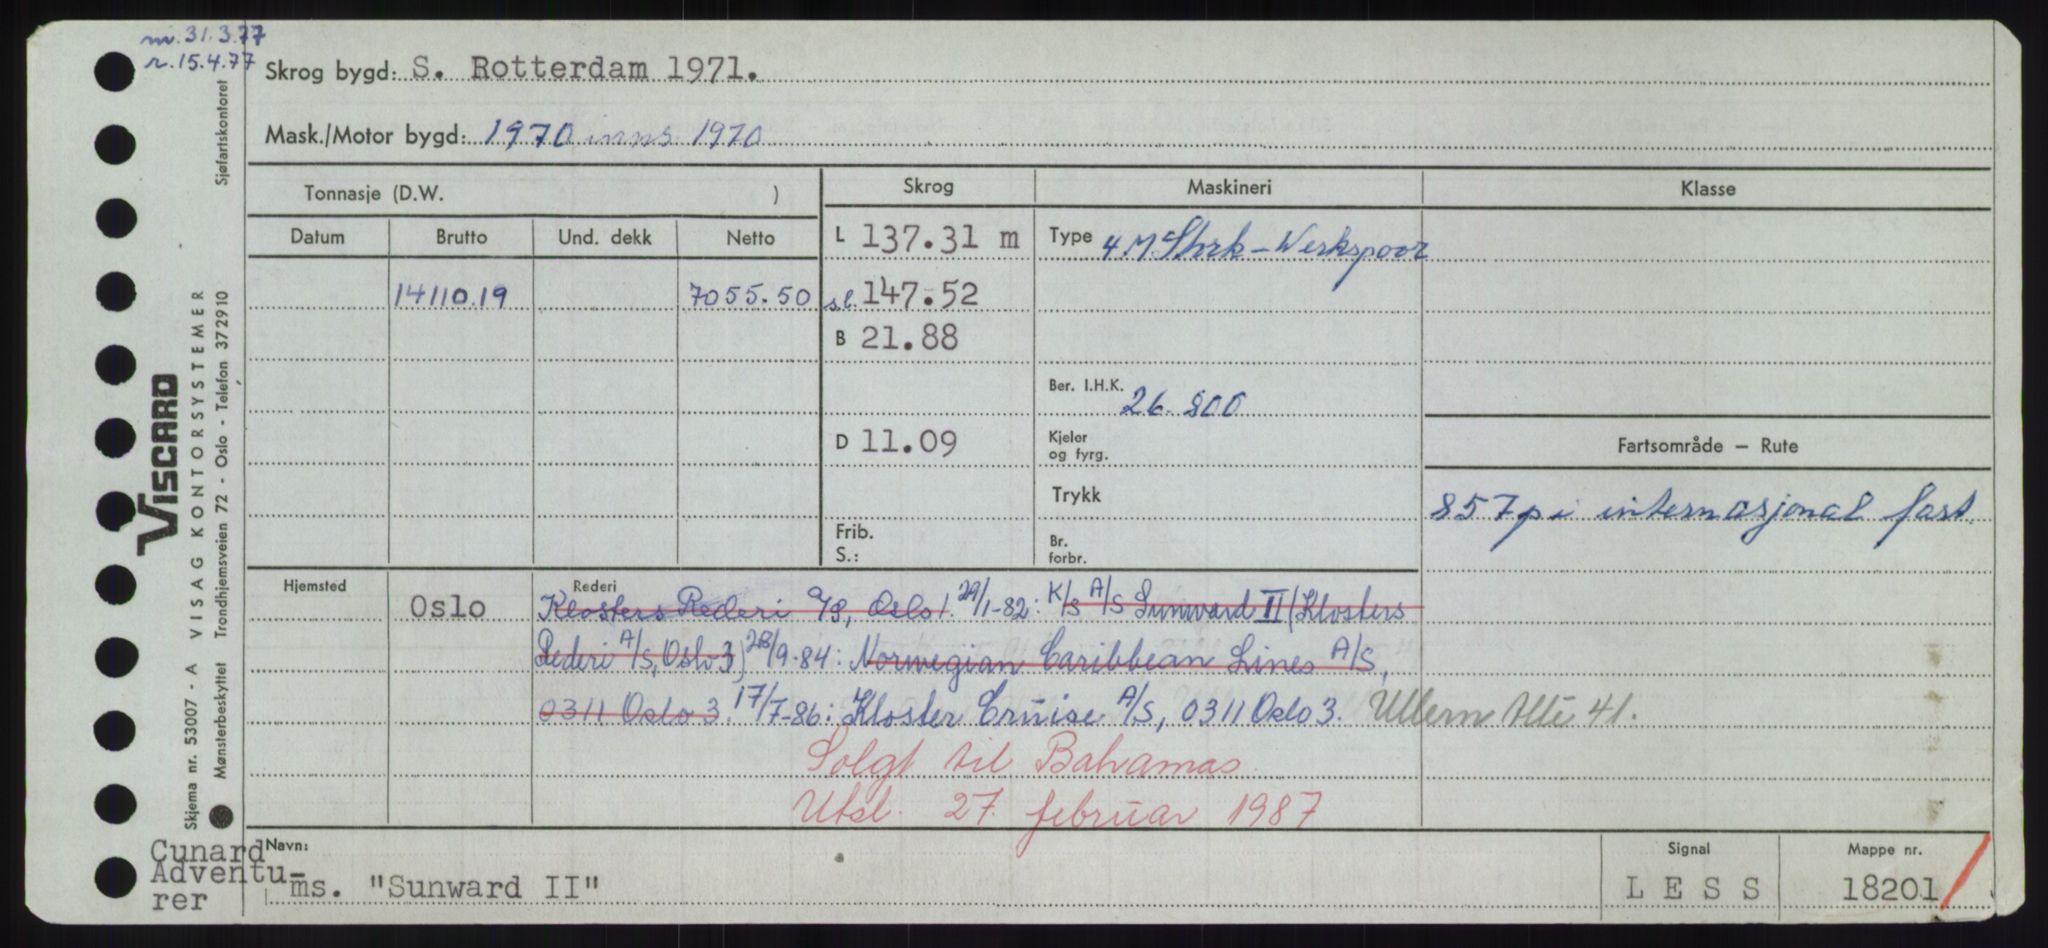 m. 31.3.77
r. 15.4.77
Skrog bygd: S. Rotterdam 1971.
Mask./Motor bygd: 1970 inns 1970
Tonnasje (D.W. )
Skrog
Maskineri
Klasse
Datum Brutto Und. dekk Netto
L 137.31 m
Type 4 M Stork-Werkspoor
14110.19 7055.50
sl. 147.52
B 21.88
Ber. I.H.K. 26.800
D 11.09
Kjeler
og fyrg.
Fartsområde — Rute
Trykk
857 p i internasjonal fart.
Frib.
S.:
Br.
forbr.
Hjemsted
Oslo
Rederi
Klosters Rederi A/S, Oslo 1. 29/1-82: K/S A/S Sunward II (Klosters
Rederi A/S, Oslo 3) 28/9-84: Norwegian Caribbean Lines A/S,
0311 Oslo 3. 17/7-86: Kloster Cruise A/S, 0311 Oslo 3. Ullern Alle 41.
Solgt til Bahamas
Utsl. 27. februar 1987
Navn:
ms. "Sunward II"
Signal
LESS
Mappe nr.
18201
Cunard
Adventu-
rer
VISCARD
Skjema nr. 53007 - A VISAG KONTORSYSTEMER
Mønsterbeskyttet Trondhjemsveien 72 - Oslo - Telefon 372910
Sjøfartskontoret